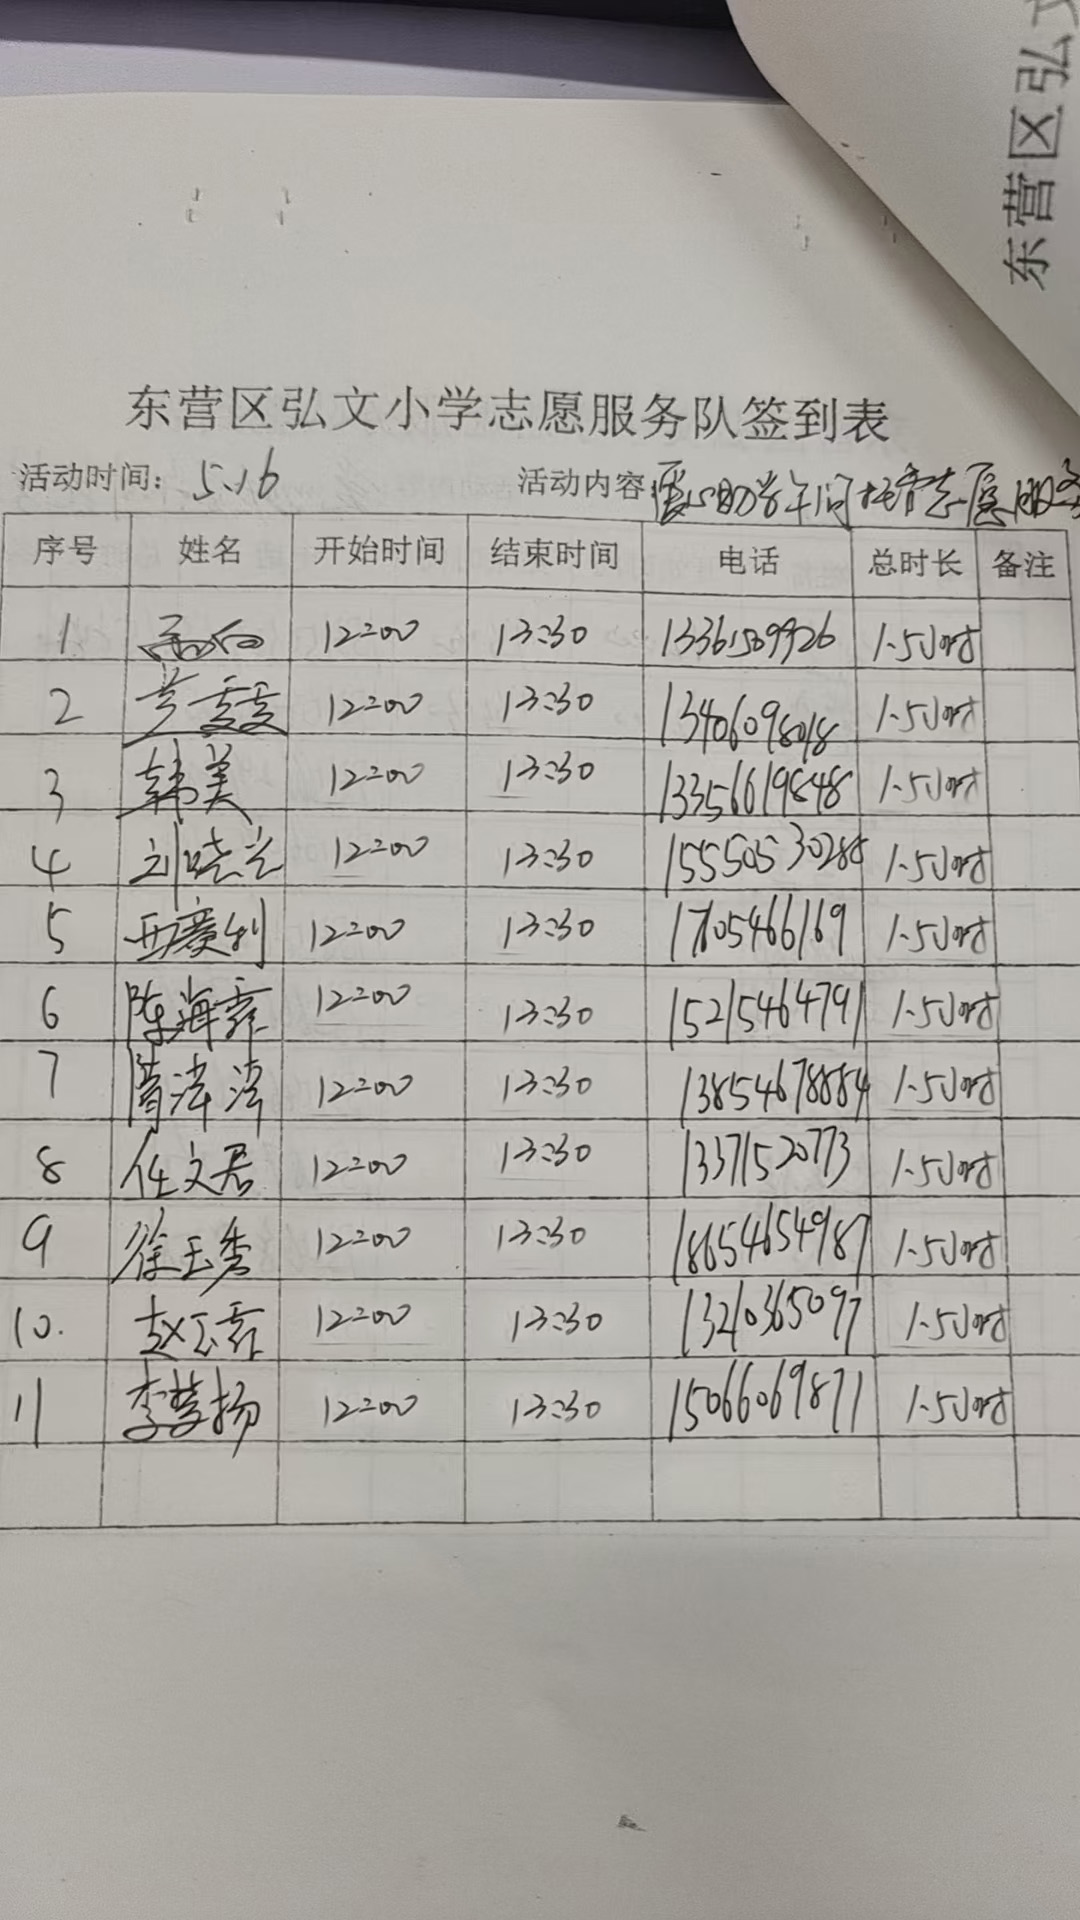 东营区弘文
东营区弘文小学志愿服务队签到表
活动时间: 5.16 活动内容:爱心助学午间托管志愿服务
序号 姓名 开始时间 结束时间 电话 总时长 备注
1 12:00 13:30 1.5小时
2 12:00 13:30 13406098018 1.5小时
3 韩美 12:00 13:30 13356619848 1.5小时
4 刘晓兰 12:00 13:30 15550530288 1.5小时
5 12:00 13:30 17605466169 1.5小时
6 陈海霞 12:00 13:30 15215464791 1.5小时
7 12:00 13:30 13854678884 1.5小时
8 任文君 12:00 13:30 13371520773 1.5小时
9 徐玉秀 12:00 13:30 18654654987 1.5小时
10. 赵玉霞 12:00 13:30 13210365097 1.5小时
11 李梦扬 12:00 13:30 15066069871 1.5小时